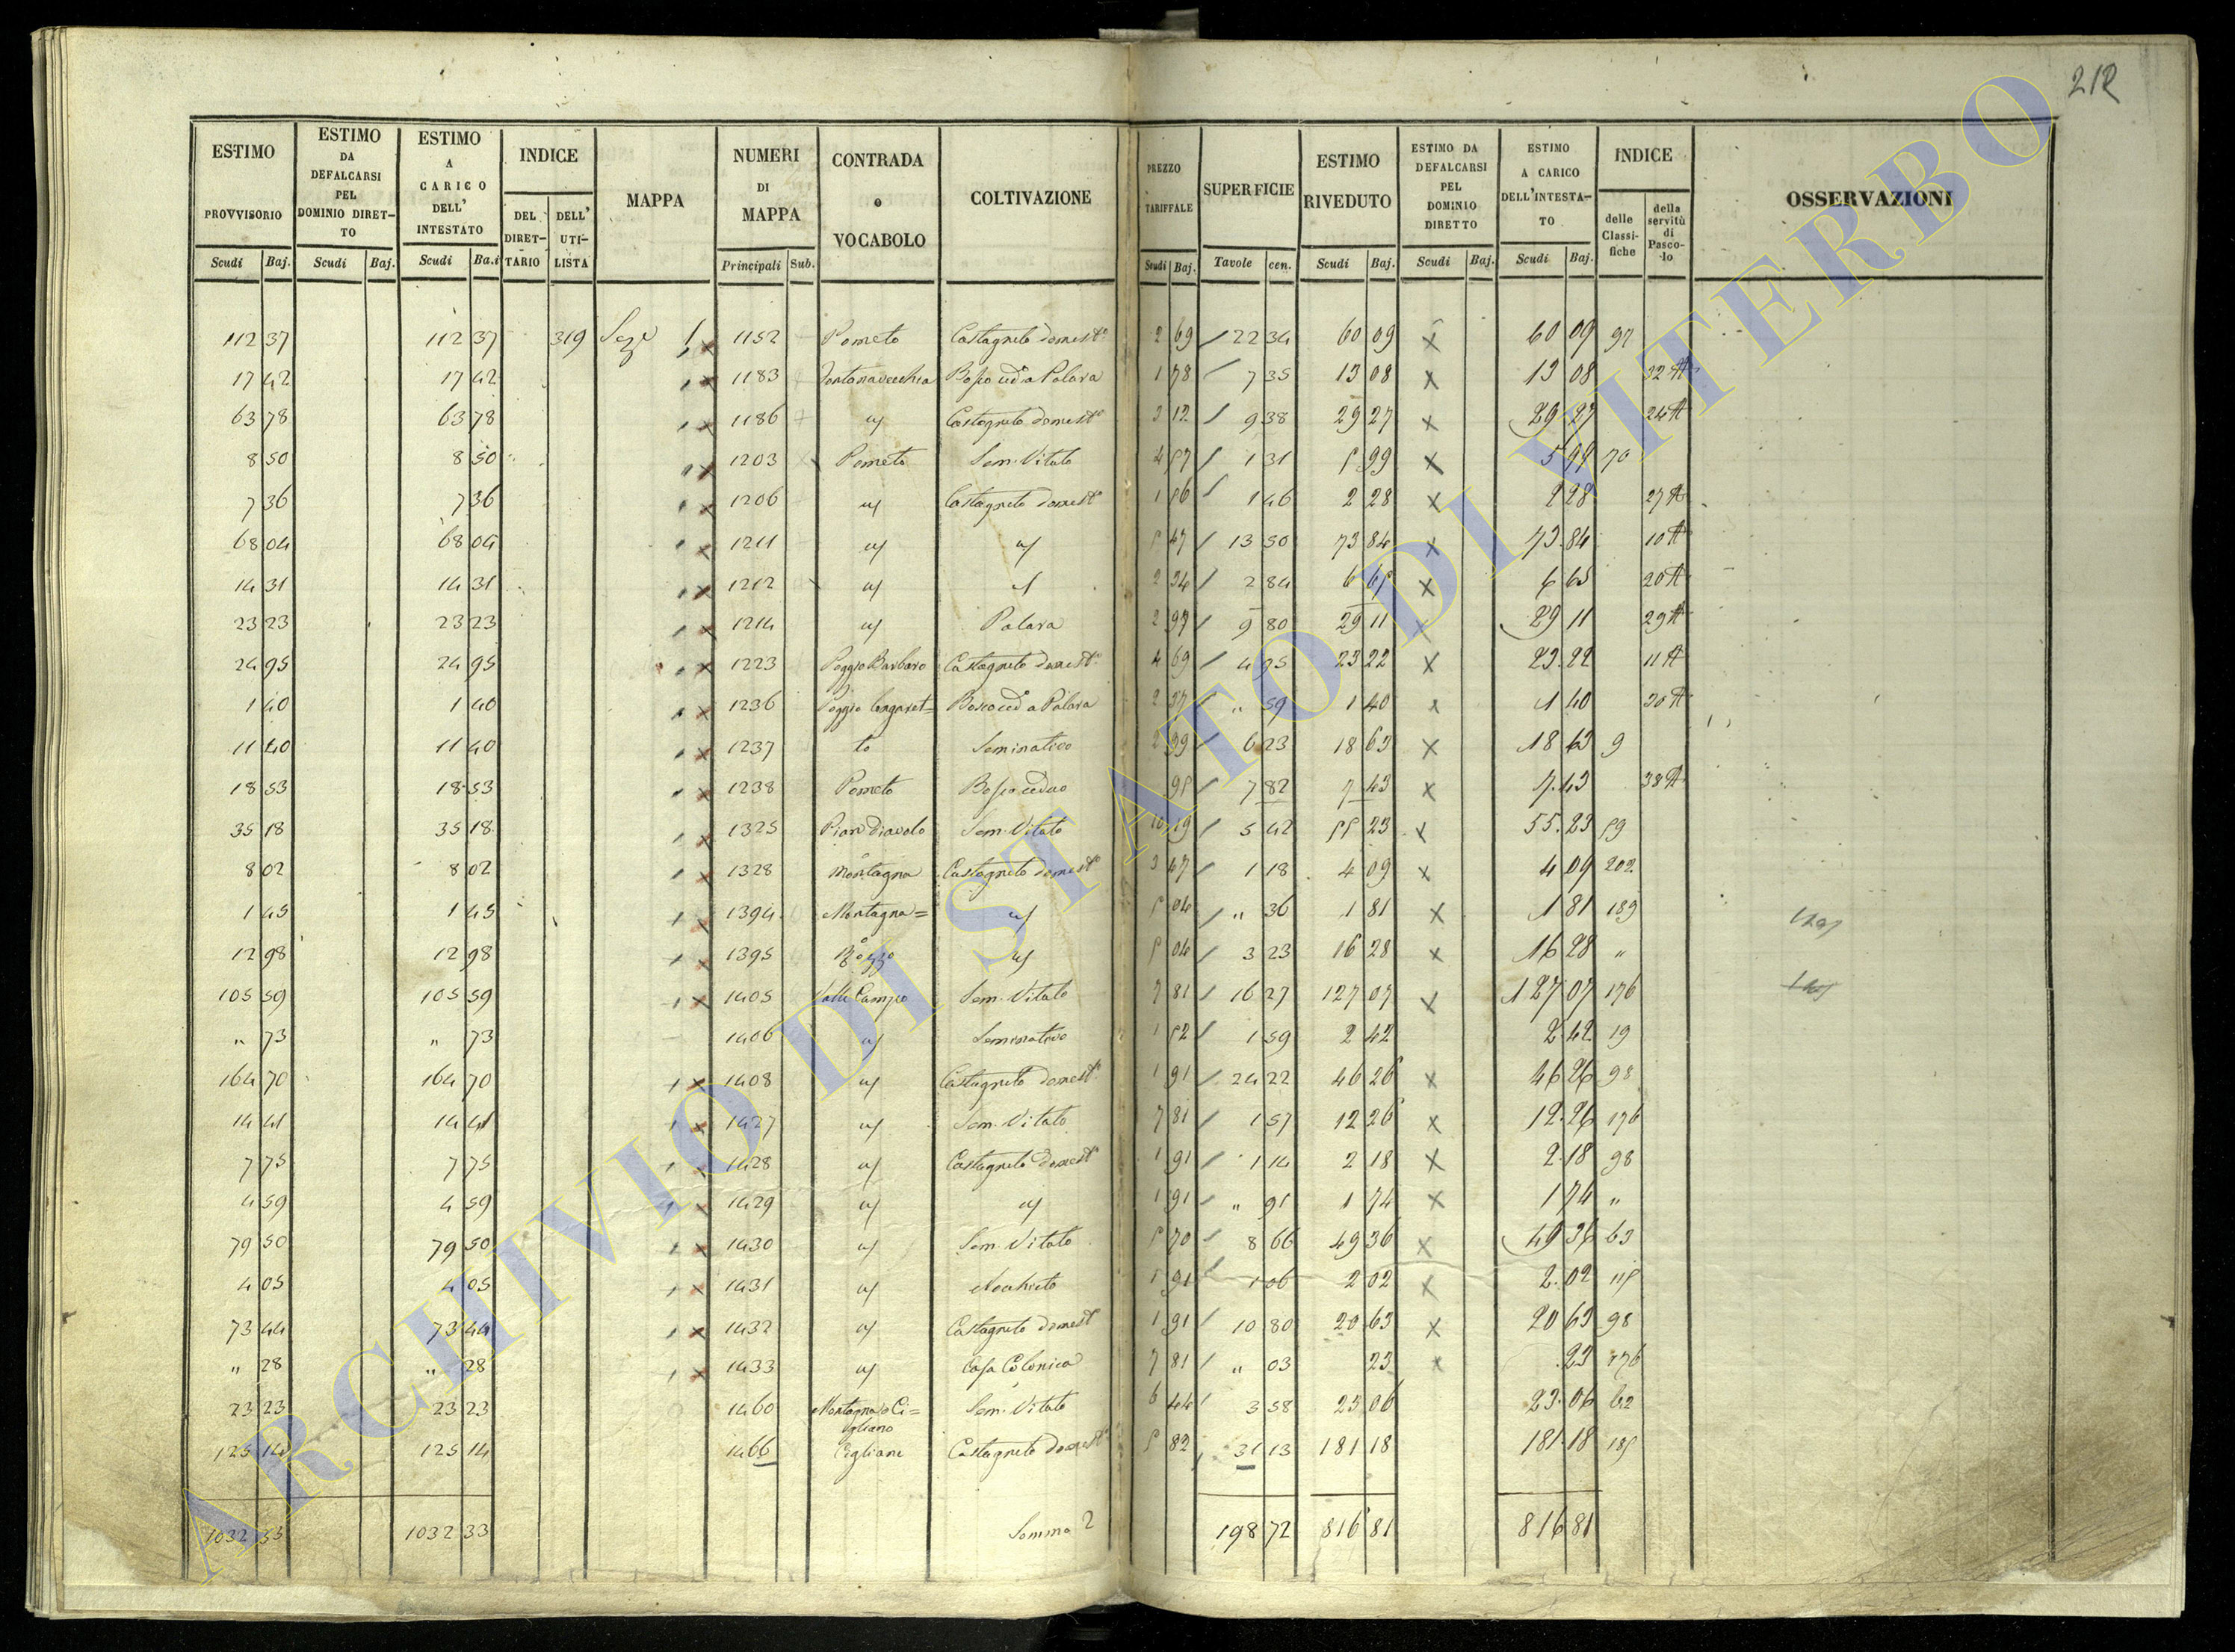 212
ESTIMO PROVVISORIO Scudi Baj. | ESTIMO DA DEFALCARSI PEL DOMINIO DIRET-TO Scudi Baj. | ESTIMO A CARICO DELL' INTESTATO Scudi Ba.i | INDICE DEL DIRET-TARIO DELL' UTI-LISTA | MAPPA | NUMERI DI MAPPA Principali Sub. | CONTRADA o VOCABOLO | COLTIVAZIONE | PREZZO TARIFFALE Scudi Baj. | SUPERFICIE Tavole cen. | ESTIMO RIVEDUTO Scudi Baj. | ESTIMO DA DEFALCARSI PEL DOMINIO DIRETTO Scudi Baj. | ESTIMO A CARICO DELL'INTESTA-TO Scudi Baj. | INDICE delle Classi-fiche della servitù di Pasco-lo | OSSERVAZIONI
112 37 112 37 319 Seze 1 x 1152 Pometo Castagneto domest° 2 69 / 22 34 60 09 x 60 09 97
17 42 17 42 1 x 1183 Fontanavecchia Bosco ced a Palara 1 78 / 7 35 13 08 x 13 08 32 A
63 78 63 78 1 x 1186 " Castagneto domest° 3 12 / 9 38 29 27 x 29 27 24 A
8 50 8 50 1 x 1203 Pometo Sem. Vitato 4 57 / 1 31 5 99 x 5 99 70
7 36 7 36 1 x 1206 " Castagneto domest° 1 56 / 1 46 2 28 x 2 28 27 A
68 04 68 04 1 x 1211 " " 5 47 / 13 50 73 84 x 73 84 10 A
14 31 14 31 1 x 1212 " " 2 34 / 2 84 6 65 x 6 65 20 A
23 23 23 23 1 x 1214 " Palara 2 97 / 9 80 29 11 x 29 11 29 A
24 95 24 95 1 x 1223 Poggio Barbaro Castagneto domest° 4 69 / 4 95 23 22 x 23 22 11 A
1 40 1 40 1 x 1236 Poggio Bosco ced a Palara 2 37 / " 59 1 40 x 1 40 30 A
11 40 11 40 1 x 1237 to Seminativo 2 99 / 6 23 18 63 x 18 63 9
18 53 18 53 1 x 1238 Pometo Bosco ceduo 95 / 7 82 7 43 x 7 43 38 A
35 18 35 18 1 x 1325 Pian Diavolo Sem. Vitato 10 19 / 5 42 55 23 x 55 23 59
8 02 8 02 1 x 1328 Montagna Castagneto domest° 3 47 / 1 18 4 09 x 4 09 202
1 45 1 45 1 x 1394 Montagna= " 5 04 / " 36 1 81 x 1 81 189
12 98 12 98 1 x 1395 " 5 04 / 3 23 16 28 x 16 28 "
105 59 105 59 1 x 1405 Valle Campo Sem. Vitato 7 81 / 16 27 127 07 x 127 07 176
" 73 " 73 1406 " Seminativo 1 52 / 1 59 2 42 2 42 19
164 70 164 70 1 x 1408 " Castagneto domest° 1 91 / 24 22 46 26 x 46 26 98
14 41 14 41 1 x 1427 " Sem. Vitato 7 81 / 1 57 12 26 x 12 26 176
7 75 7 75 1 x 1428 " Castagneto domest° 1 91 / 1 14 2 18 x 2 18 98
4 59 4 59 1 x 1429 " " 1 91 / " 91 1 74 x 1 74 "
79 50 79 50 1 x 1430 " Sem. Vitato 5 70 / 8 66 49 36 x 49 36 63
4 05 4 05 1 x 1431 " 1 91 / 1 06 2 02 x 2 02 115
73 44 73 44 1 x 1432 " Castagneto domest° 1 91 / 10 80 20 63 x 20 63 98
" 28 " 28 1 x 1433 " Casa Colonica 7 81 / " 03 23 x 23 176
23 23 23 23 1460 Montagna o Ci=gliano Sem. Vitato 6 44 / 3 58 23 06 23 06 62
125 14 125 14 1466 Cigliano Castagneto domest° 5 82 / 31 13 181 18 181 18 185
1032 33 1032 33 Somma 2 198 72 816 81 816 81
ARCHIVIO DI STATO DI VITERBO